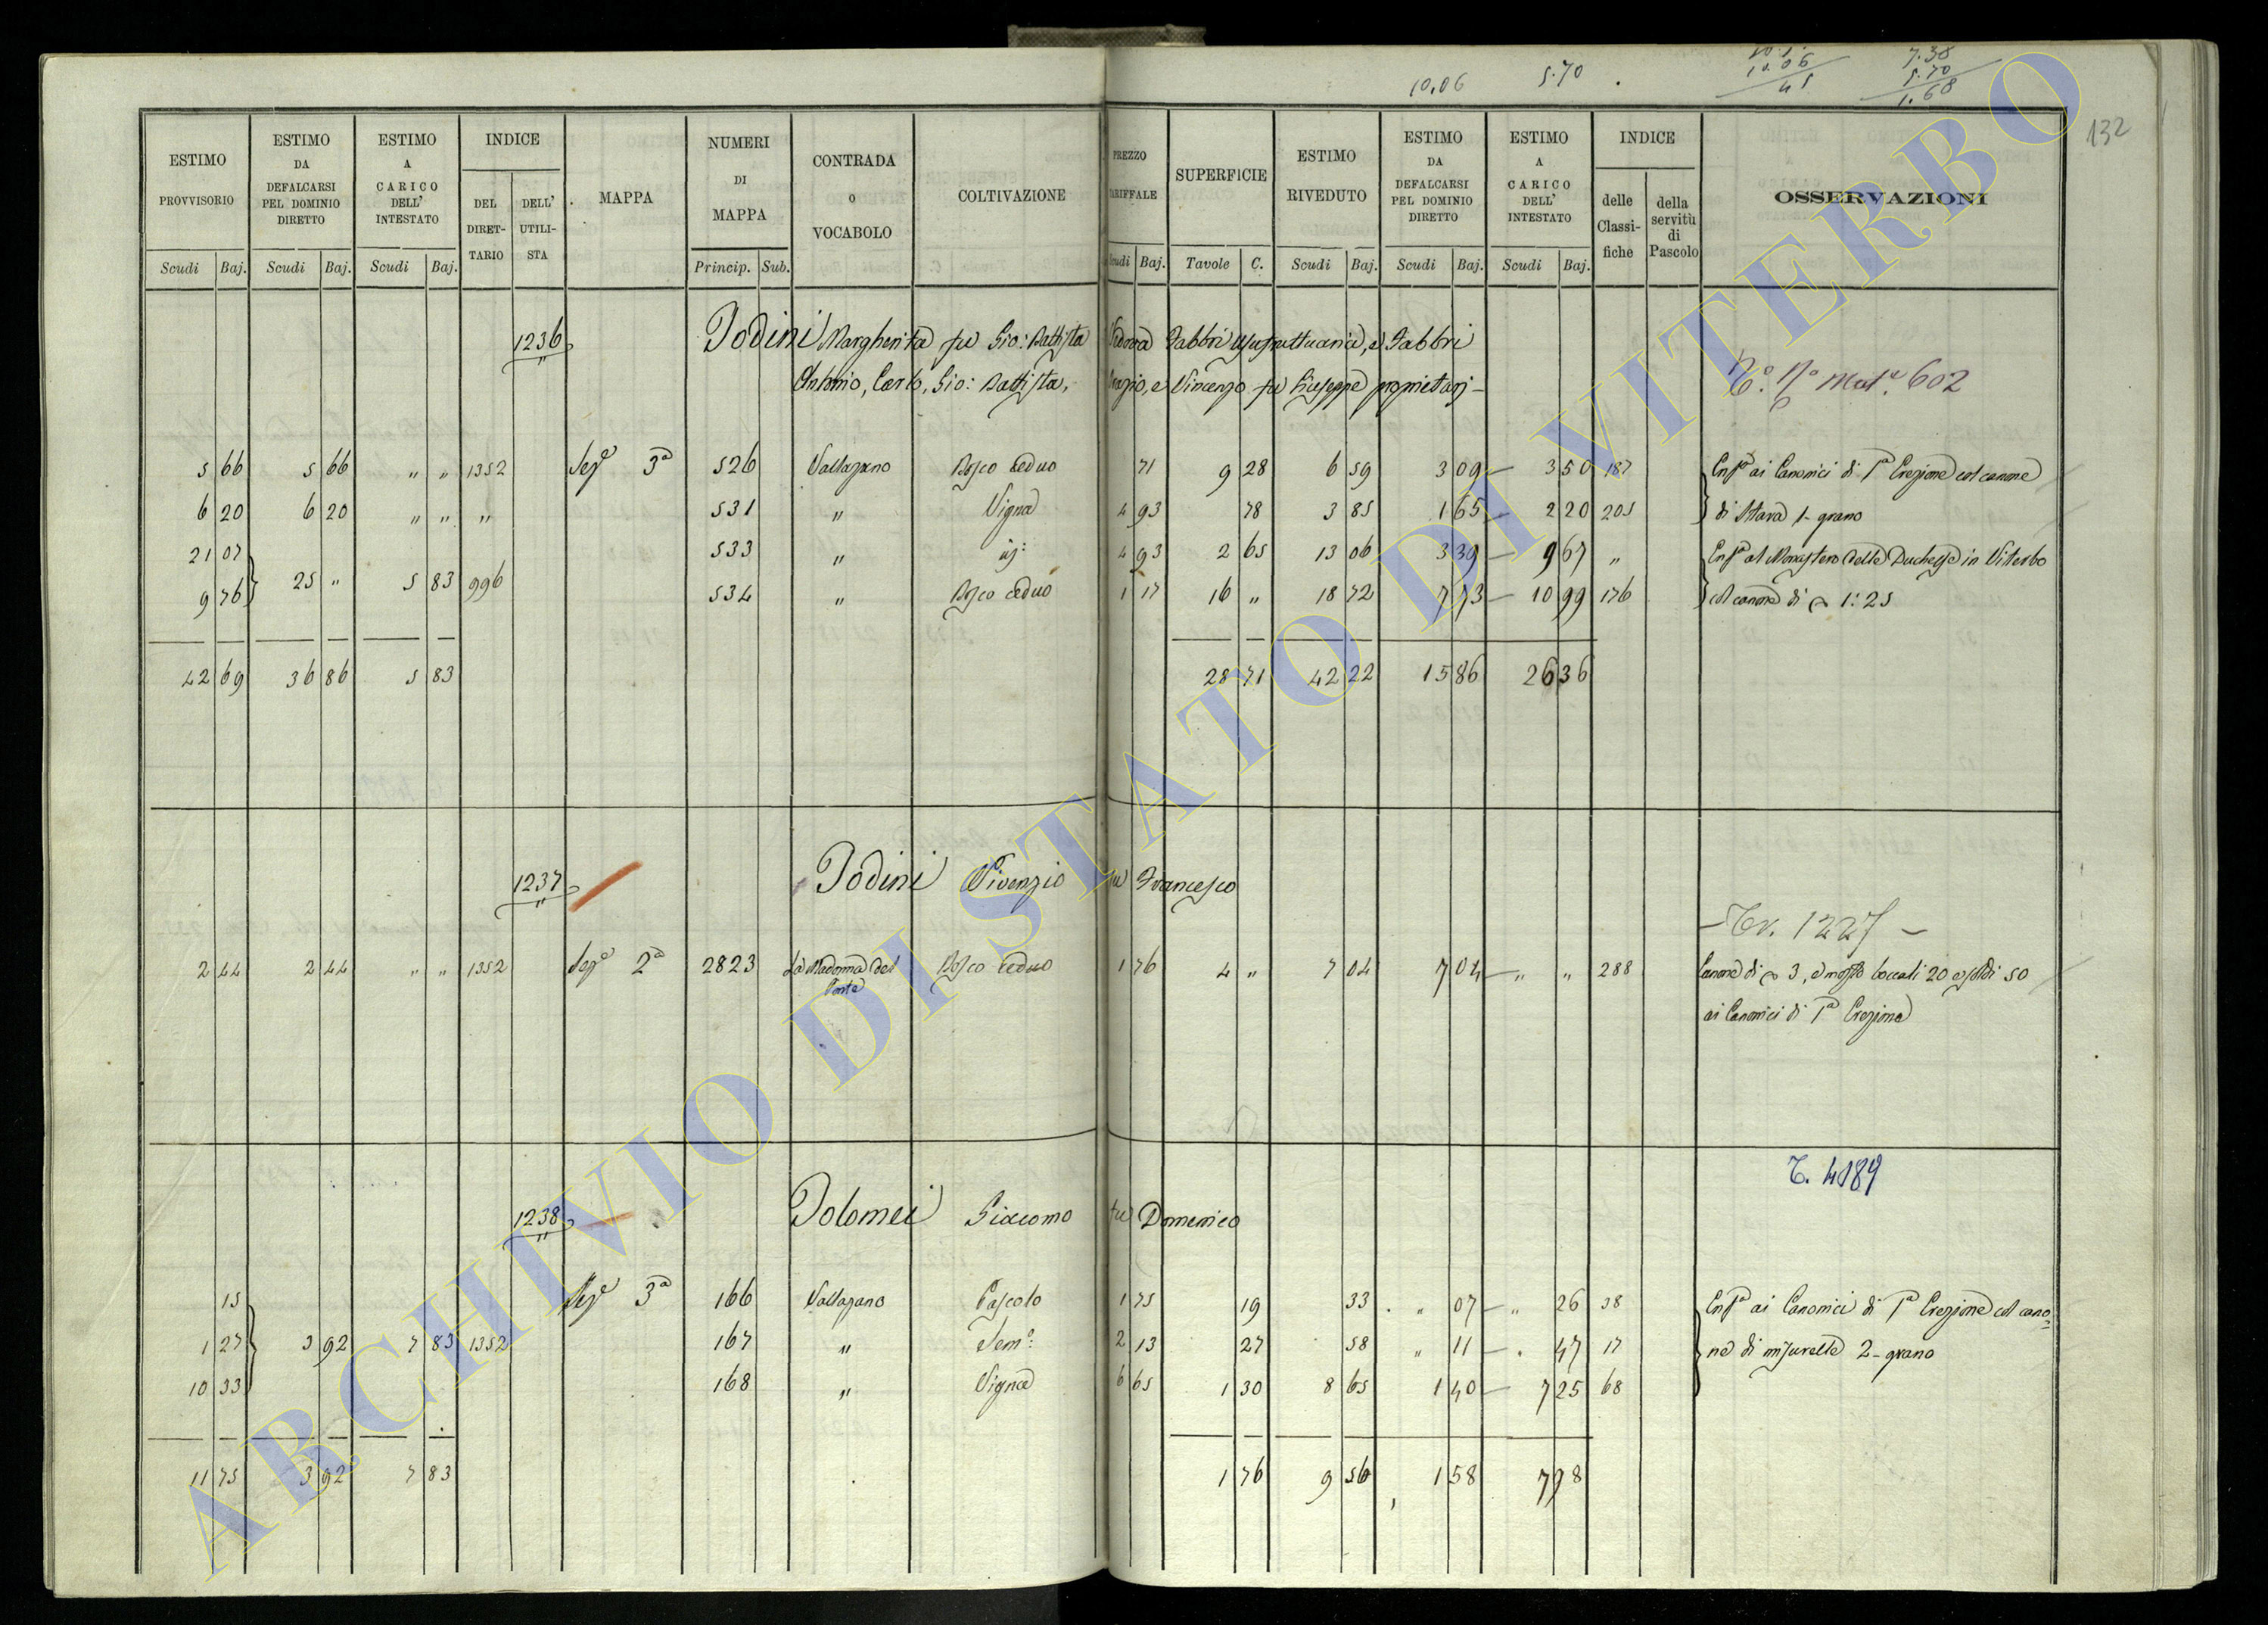 10.06 5.70 10.06 45 7.38 5.70 1.68
132
ESTIMO PROVVISORIO | ESTIMO DA DEFALCARSI PEL DOMINIO DIRETTO | ESTIMO A CARICO DELL' INTESTATO | INDICE DEL DIRET-TARIO | DELL' UTILI-STA | MAPPA | NUMERI DI MAPPA | CONTRADA O VOCABOLO | COLTIVAZIONE | PREZZO TARIFFALE | SUPERFICIE | ESTIMO RIVEDUTO | ESTIMO DA DEFALCARSI PEL DOMINIO DIRETTO | ESTIMO A CARICO DELL' INTESTATO | INDICE delle Classi-fiche | della servitù di Pascolo | OSSERVAZIONI
Scudi Baj. Scudi Baj. Scudi Baj. Princip. Sub. Scudi Baj. Tavole C. Scudi Baj. Scudi Baj. Scudi Baj.
1236 Todini Margherita fu Gio: Battista Vedova Fabbri usufruttuaria, e Fabbri
Antonio, Carlo, Gio: Battista, Orazio, e Vincenzo fu Giuseppe proprietarj
602
5 66 5 66 " " 1352 Sez.e 3a 526 Vallazano Bosco ceduo 71 9 28 6 59 3 09 — 3 50 187 Enf.a ai Canonici di 1a Erezione col canone
6 20 6 20 " " " 531 " Vigna 4 93 78 3 85 1 65 — 2 20 205 di Stara 1- grano
21 07 25 " 5 83 996 533 " id: 4 93 2 65 13 06 3 39 — 9 67 " Enf.a al Monastero delle Duchesse in Viterbo
9 76 534 " Bosco ceduo 1 17 16 " 18 72 7 73 — 10 99 176 col canone di 1:25
42 69 36 86 5 83 28 71 42 22 15 86 26 36
1237 Todini Vivenzio fu Francesco
- Tr. 1227 -
2 44 2 44 " " 1352 Sez.e 2a 2823 La Madonna del Ponte Bosco ceduo 1 76 4 " 7 04 7 04 — " " 288 Canone di 3, e mosto boccali 20 e soldi 50
ai Canonici di 1a Erezione
T. 4189
1238 Tolomei Giacomo fu Domenico
15 Sez.e 3a 166 Vallazano Pascolo 1 75 19 33 " 07 — " 26 38 Enf.a ai Canonici di 1a Erezione col cano=
1 27 3 92 7 83 1352 167 " Sem.o: 2 13 27 58 " 11 — 47 17 ne di misurelle 2- grano
10 33 168 " Vigna 6 65 1 30 8 65 1 40 — 7 25 68
11 75 3 92 7 83 1 76 9 56 1 58 7 98
ARCHIVIO DI STATO DI VITERBO